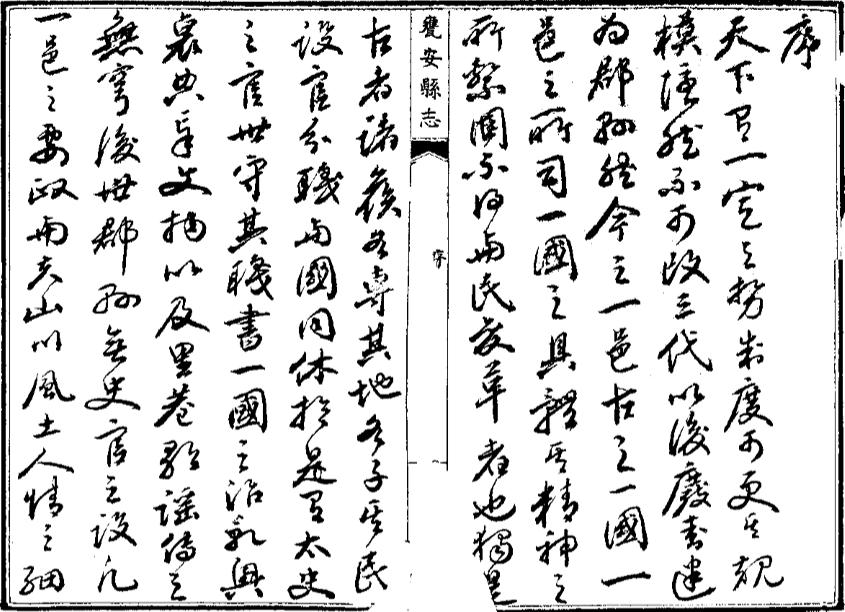 序
天下有一定之勢制度可更其規
模隱然不可改三代以後廢封建
為郡縣然今之一邑古之一國一
邑之所司一國之具體其精神之
所繫固不得與民變革者也獨是
甕安縣志
序
一
古者諸侯各專其地各子其民
設官分職與國同休於是有太史
之官世守其職書一國之治亂興
衰典章文物以及里巷歌謠傳之
無窮後世郡縣無史官之設凡
一邑之要政與夫山川風土人情之細